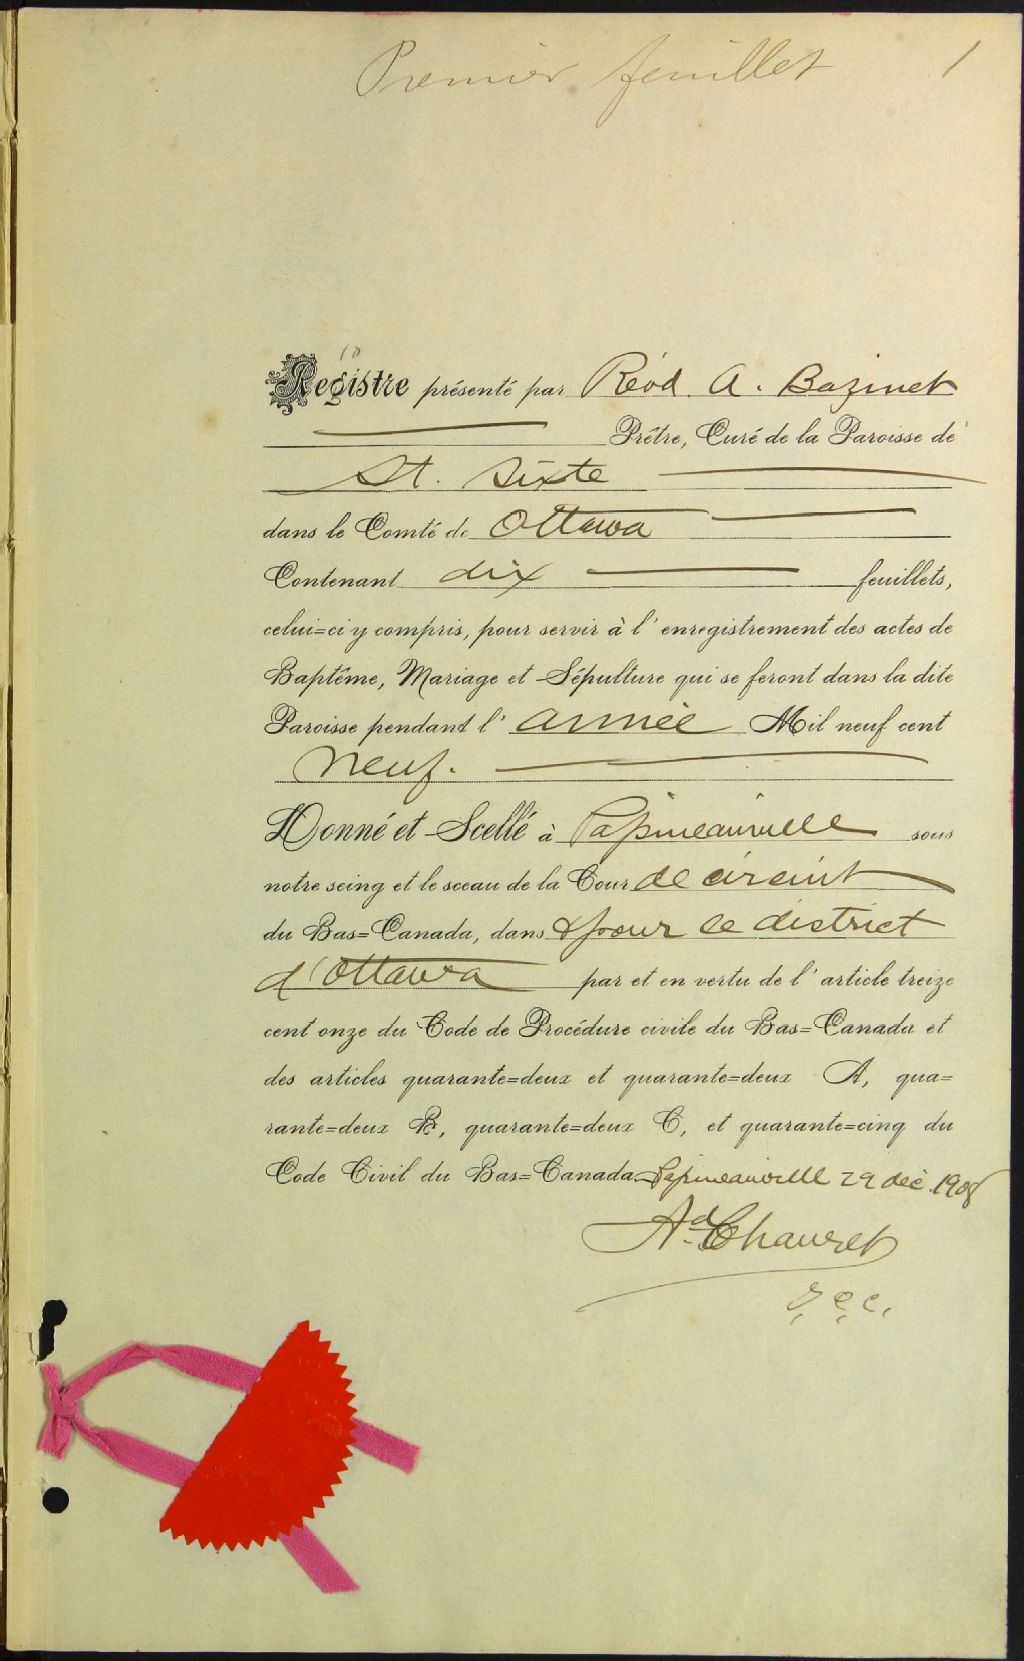 Premier feuillet 1
10
Registre présenté par Révd. A. Bazinet
Prêtre, Curé de la Paroisse de
St. Sixte
dans le Comté de Ottawa
Contenant dix feuillets,
celui=ci y compris, pour servir à l'enregistrement des actes de
Baptême, Mariage et Sépulture qui se feront dans la dite
Paroisse pendant l'année Mil neuf cent
neuf.
Donné et Scellé à Papineauville sous
notre seing et le sceau de la Cour de circuit
du Bas=Canada, dans & pour le district
d'Ottawa par et en vertu de l'article treize
cent onze du Code de Procédure civile du Bas=Canada et
des articles quarante=deux et quarante=deux A, qua=
rante=deux B, quarante=deux C, et quarante=cinq du
Code Civil du Bas=Canada. Papineauville 29 déc. 1908
Ad. Chauret